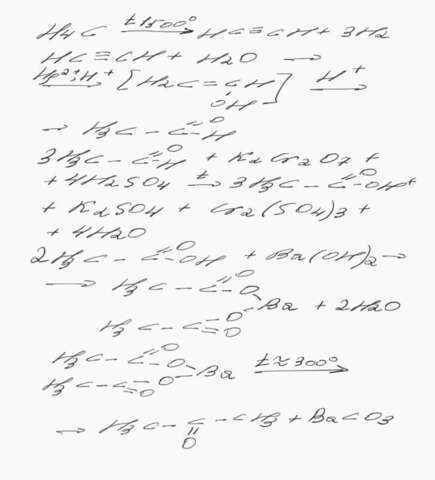 H4C t 1500° → HC≡CH + 3H2
HC≡CH + H2O →
Hg2+; H+ → [H2C=CH OH] H+ →
→ H3C-C=O H
3H3C-C=O H + K2Cr2O7 +
+ 4H2SO4 t → 3H3C-C=O OH +
+ K2SO4 + Cr2(SO4)3 +
+ 4H2O
2H3C-C=O OH + Ba(OH)2 →
→ H3C-C=O O
Ba + 2H2O
H3C-C=O O
H3C-C=O O
Ba t≈300° →
H3C-C=O O
→ H3C-C-CH3 + BaCO3
O